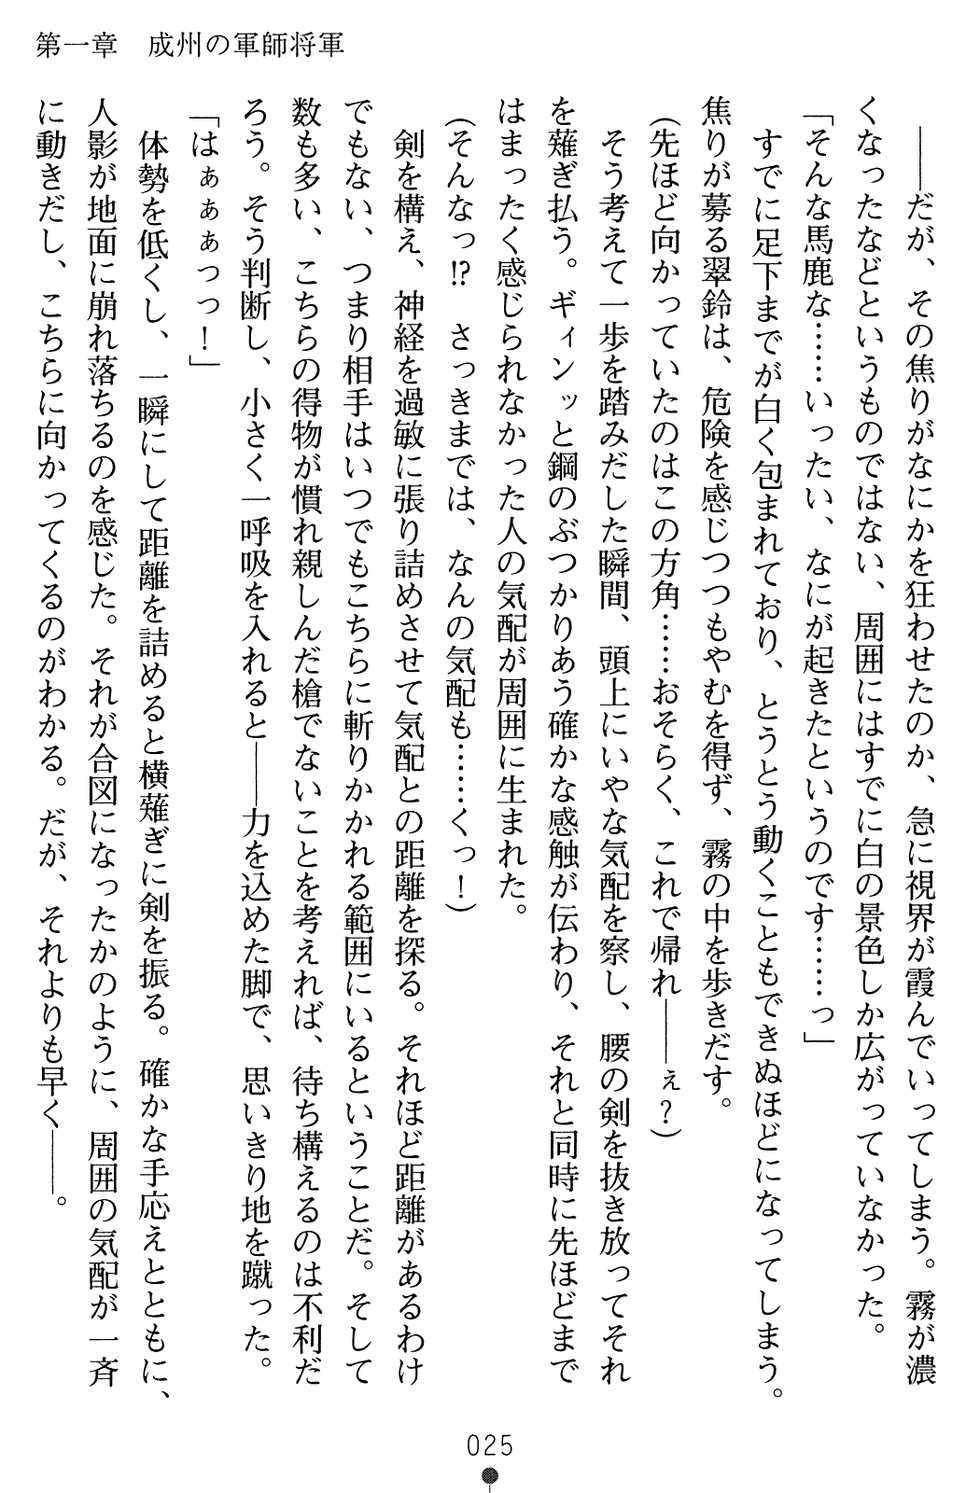 第一章　成州の軍師将軍
――だが、その焦りがなにかを狂わせたのか、急に視界が霞んでいってしまう。霧が濃
くなったなどというものではない、周囲にはすでに白の景色しか広がっていなかった。
「そんな馬鹿な……いったい、なにが起きたというのです……っ」
すでに足下までが白く包まれており、とうとう動くこともできぬほどになってしまう。
焦りが募る翠鈴は、危険を感じつつもやむを得ず、霧の中を歩きだす。
(先ほど向かっていたのはこの方角……おそらく、これで帰れ――ぇ？)
そう考えて一歩を踏みだした瞬間、頭上にいやな気配を察し、腰の剣を抜き放ってそれ
を薙ぎ払う。ギィンッと鋼のぶつかりあう確かな感触が伝わり、それと同時に先ほどまで
はまったく感じられなかった人の気配が周囲に生まれた。
(そんなっ!?　さっきまでは、なんの気配も……くっ！)
剣を構え、神経を過敏に張り詰めさせて気配との距離を探る。それほど距離があるわけ
でもない、つまり相手はいつでもこちらに斬りかかれる範囲にいるということだ。そして
数も多い、こちらの得物が慣れ親しんだ槍でないことを考えれば、待ち構えるのは不利だ
ろう。そう判断し、小さく一呼吸を入れると――力を込めた脚で、思いきり地を蹴った。
「はぁぁぁっっ！」
体勢を低くし、一瞬にして距離を詰めると横薙ぎに剣を振る。確かな手応えとともに、
人影が地面に崩れ落ちるのを感じた。それが合図になったかのように、周囲の気配が一斉
に動きだし、こちらに向かってくるのがわかる。だが、それよりも早く――。
025